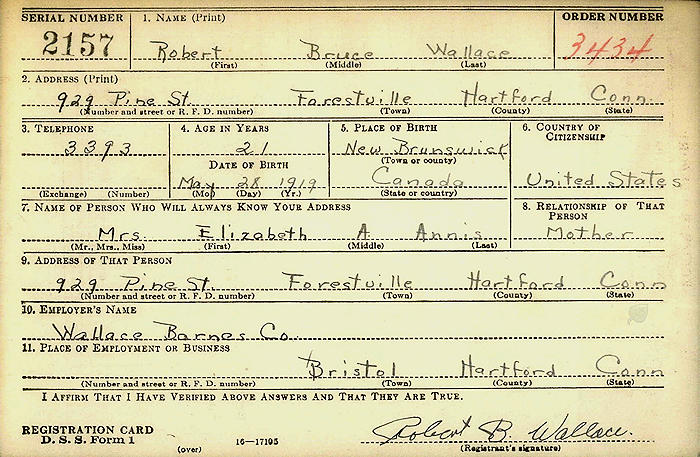 SERIAL NUMBER 1. NAME (Print) ORDER NUMBER
2157 Robert Bruce Wallace 3434
(First) (Middle) (Last)
2. ADDRESS (Print)
929 Pine St. Forestville Hartford Conn.
(Number and street or R. F. D. number) (Town) (County) (State)
3. TELEPHONE 4. AGE IN YEARS 5. PLACE OF BIRTH 6. COUNTRY OF CITIZENSHIP
3393 21 New Brunswick
DATE OF BIRTH (Town or county)
May 28 1919 Canada United States
(Exchange) (Number) (Mo.) (Day) (Yr.) (State or country)
7. NAME OF PERSON WHO WILL ALWAYS KNOW YOUR ADDRESS 8. RELATIONSHIP OF THAT PERSON
Mrs. Elizabeth A. Annis Mother
(Mr., Mrs., Miss) (First) (Middle) (Last)
9. ADDRESS OF THAT PERSON
929 Pine St. Forestville Hartford Conn
(Number and street or R. F. D. number) (Town) (County) (State)
10. EMPLOYER'S NAME
Wallace Barnes Co.
11. PLACE OF EMPLOYMENT OR BUSINESS
Bristol Hartford Conn
(Number and street or R. F. D. number) (Town) (County) (State)
I AFFIRM THAT I HAVE VERIFIED ABOVE ANSWERS AND THAT THEY ARE TRUE.
REGISTRATION CARD
D. S. S. Form 1 (over) 16—17105 Robert B. Wallace.
(Registrant's signature)